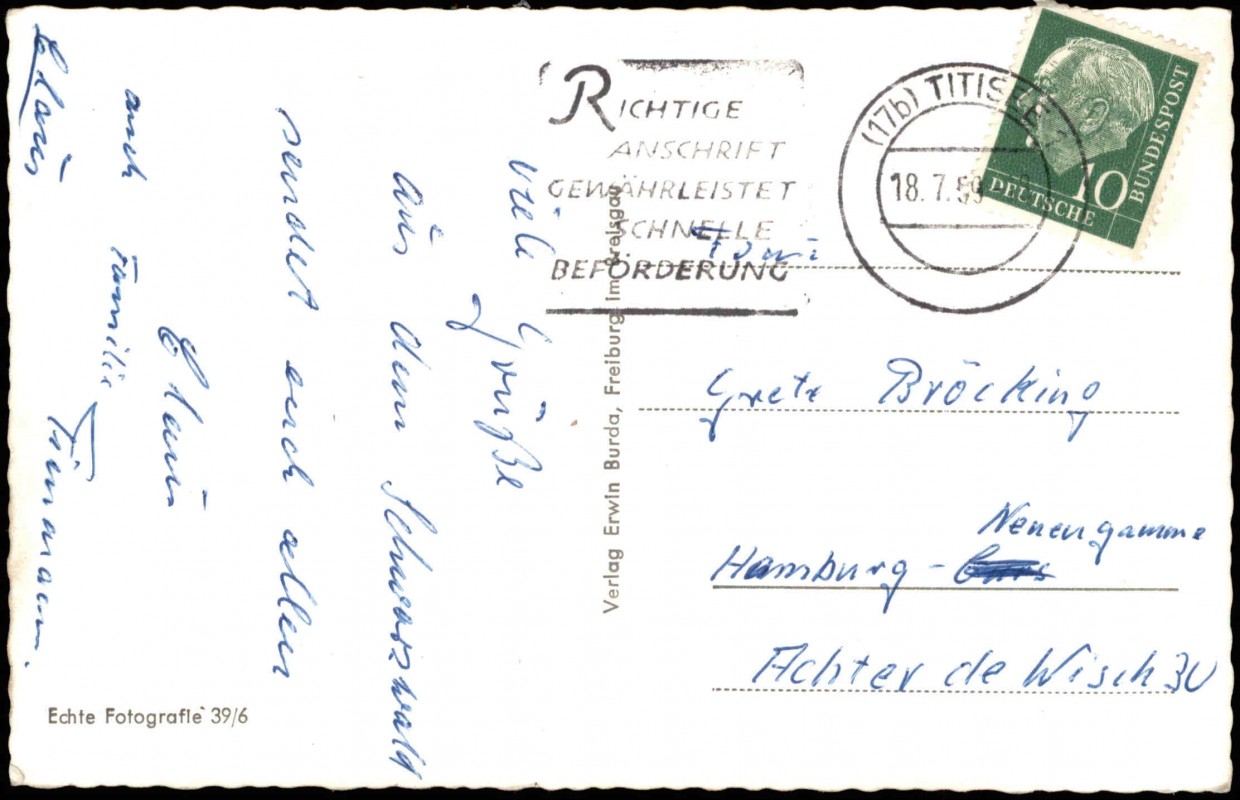 Viele Grüße
aus dem Schwarzwald
sendet euch allen
Klaus
auch Familie Timmann.
RICHTIGE
ANSCHRIFT
GEWÄHRLEISTET
SCHNELLE
BEFÖRDERUNG
(17b) TITISEE
18. 7. 59
DEUTSCHE
BUNDESPOST
10
Verlag Erwin Burda, Freiburg im Breisgau
Grete Bröcking
Neuengamme
Hamburg -
Achter de Wisch 30
Echte Fotografie 39/6